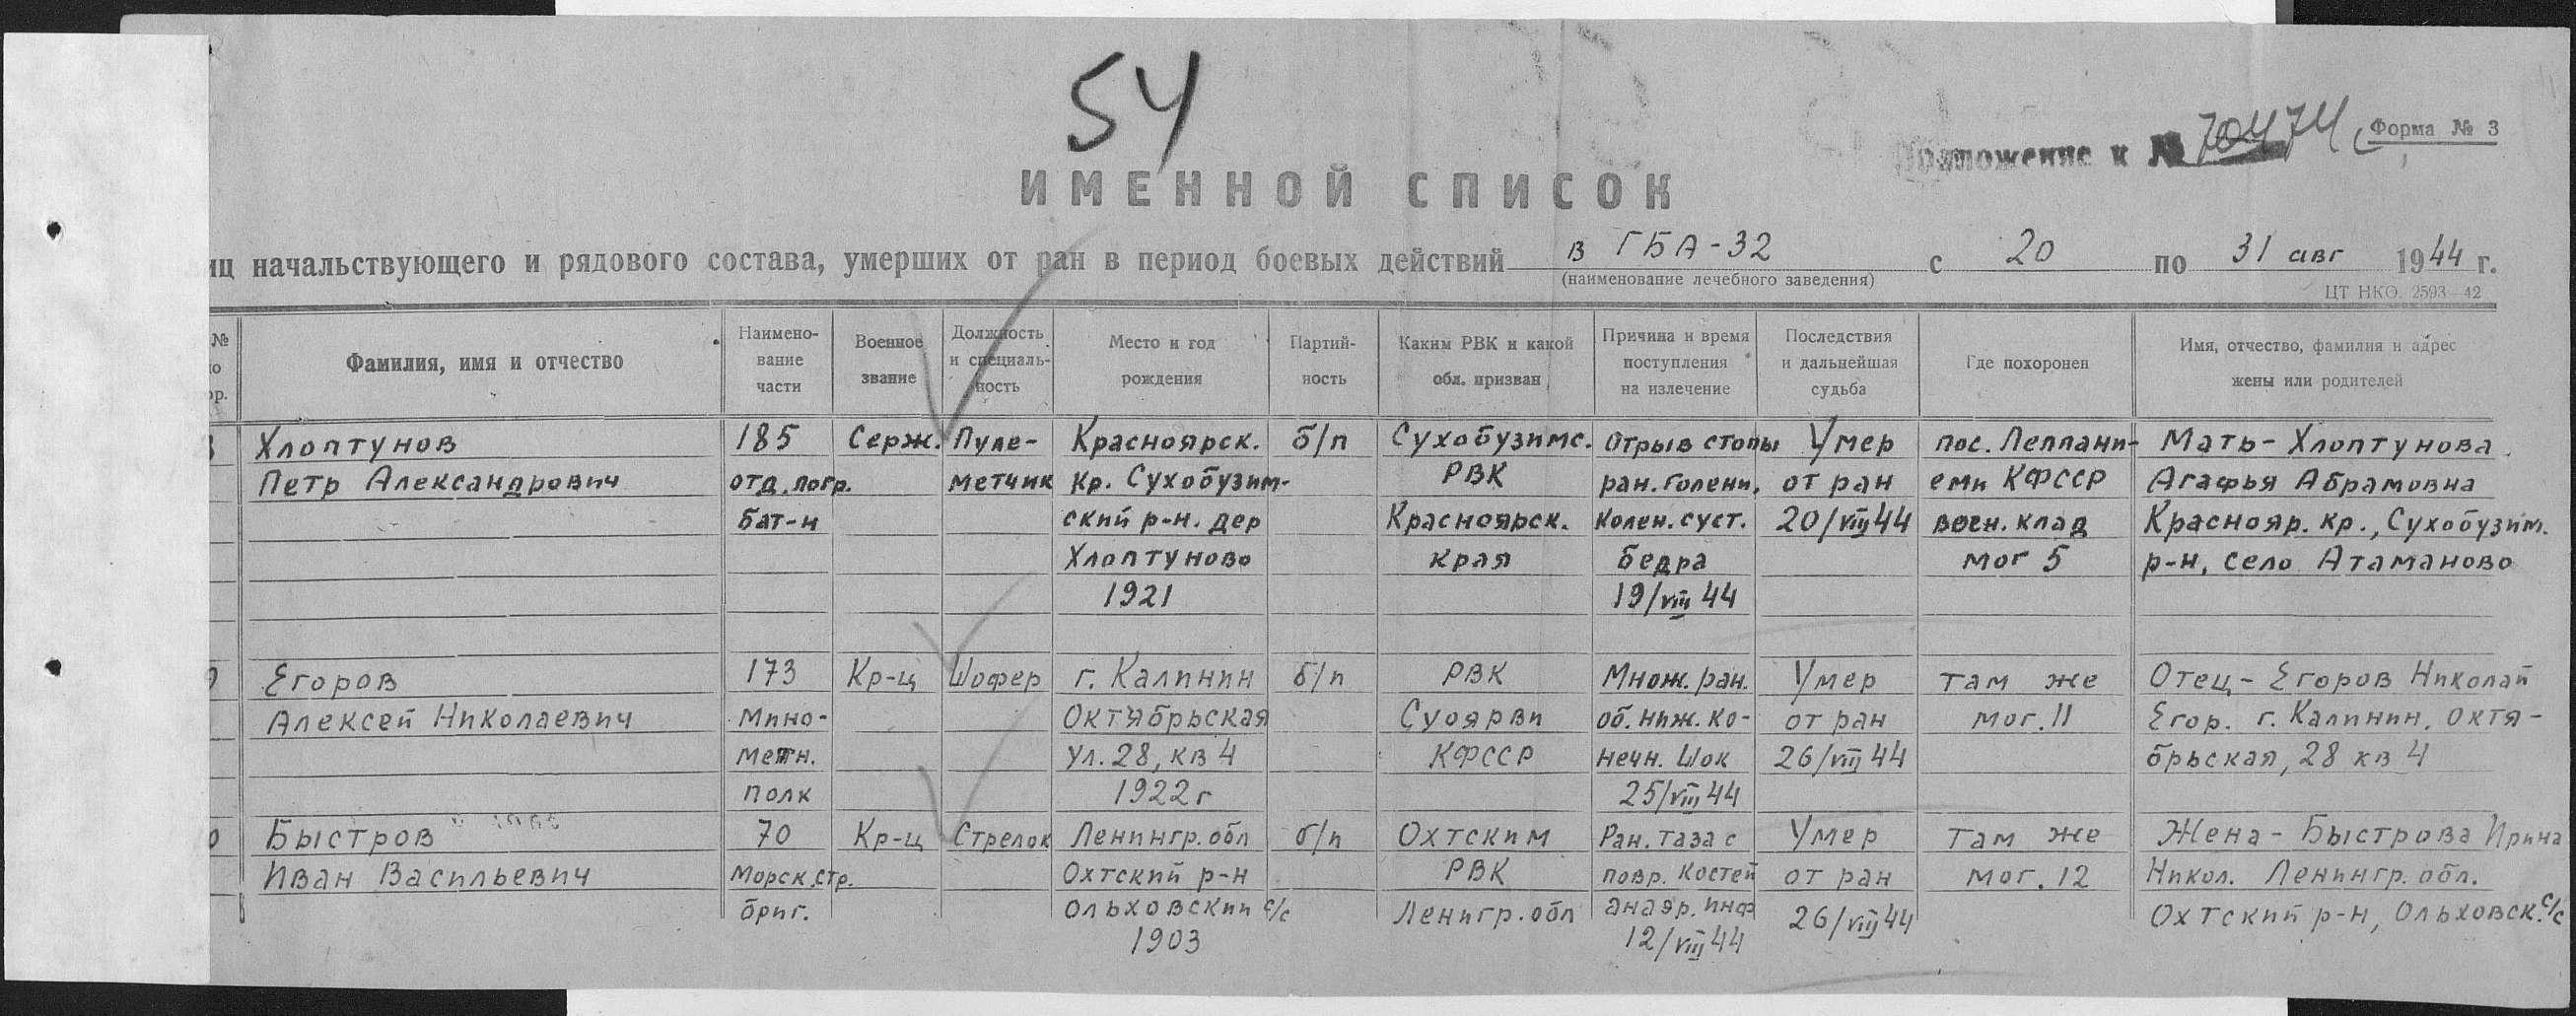 54
Приложение к № 70474 Форма № 3
ИМЕННОЙ СПИСОК
иц начальствующего и рядового состава, умерших от ран в период боевых действий в ГБА-32 с 20 по 31 авг 1944 г.
(наименование лечебного заведения)
ЦТ НКО. 2593—42
№ Фамилия, имя и отчество Наимено- Военное Должность Место и год Партий- Каким РВК и какой Причина и время Последствия Где похоронен Имя, отчество, фамилия и адрес
о вание звание и специаль- рождения ность обл. призван поступления и дальнейшая жены или родителей
ор. части ность на излечение судьба
Хлоптунов 185 Серж. Пуле- Красноярск. б/п Сухобузимс. Отрыв стопы Умер пос. Леппани- Мать - Хлоптунова
Петр Александрович отд. погр. метчик кр. Сухобузим- РВК ран. голени, от ран еми КФССР Агафья Абрамовна
бат-н ский р-н. дер Красноярск. колен. суст. 20/VIII 44 воен. клад Краснояр. кр., Сухобузим.
Хлоптуново края бедра мог 5 р-н, село Атаманово
1921 19/VIII 44
Егоров 173 Кр-ц Шофер г. Калинин б/п РВК Множ. ран. Умер там же Отец - Егоров Николай
Алексей Николаевич мино- Октябрьская Суоярви об. ниж. ко- от ран мог. 11 Егор. г. Калинин, Октя-
метн. ул. 28, кв 4 КФССР нечн. Шок 26/VIII 44 брьская, 28 кв 4
полк 1922 г 25/VIII 44
Быстров 70 Кр-ц Стрелок Ленингр. обл б/п Охтским Ран. таза с Умер там же Жена - Быстрова Ирина
Иван Васильевич Морск. стр. Охтский р-н РВК повр. костей от ран мог. 12 Никол. Ленингр. обл.
бриг. Ольховский с/с Ленигр. обл анаэр. инф 26/VIII 44 Охтский р-н, Ольховск. с/с
1903 12/VIII 44